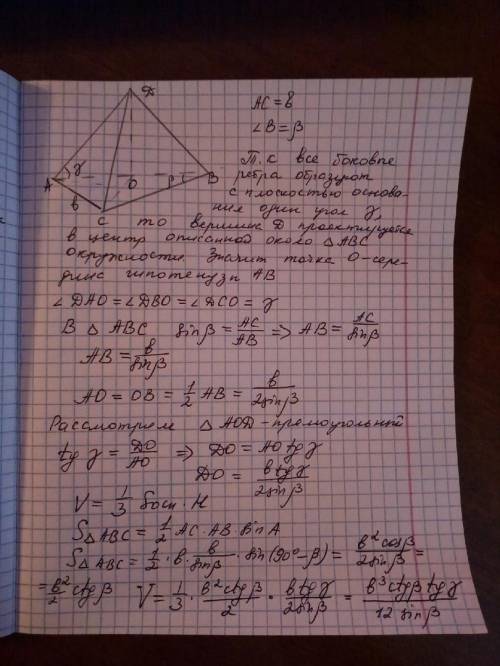 D
AC = b
∠B = β
A γ O β B
b
C
Т.к все боковые
ребра образуют
с плоскостью основа-
ния один угол γ,
то вершина D проектируется
в центр описанной около △ABC
окружности. Значит точка O-сере-
дина гипотенузы AB
∠DAO = ∠DBO = ∠DCO = γ
В △ ABC sinβ = AC/AB => AB = AC/sinβ
AB = b/sinβ
AO = OB = 1/2 AB = b/2sinβ
Рассмотрим △ AOD - прямоугольный
tg γ = DO/AO => DO = AO tg γ
DO = b tg γ/2sinβ
V = 1/3 Sосн · H
S△ABC = 1/2 AC · AB · sin A
S△ABC = 1/2 · b · b/sinβ · sin(90°-β) = b² cosβ/2sinβ =
= b²/2 ctgβ V = 1/3 · b² ctgβ/2 · b tg γ/2sinβ = b³ ctgβ tg γ/12 sinβ